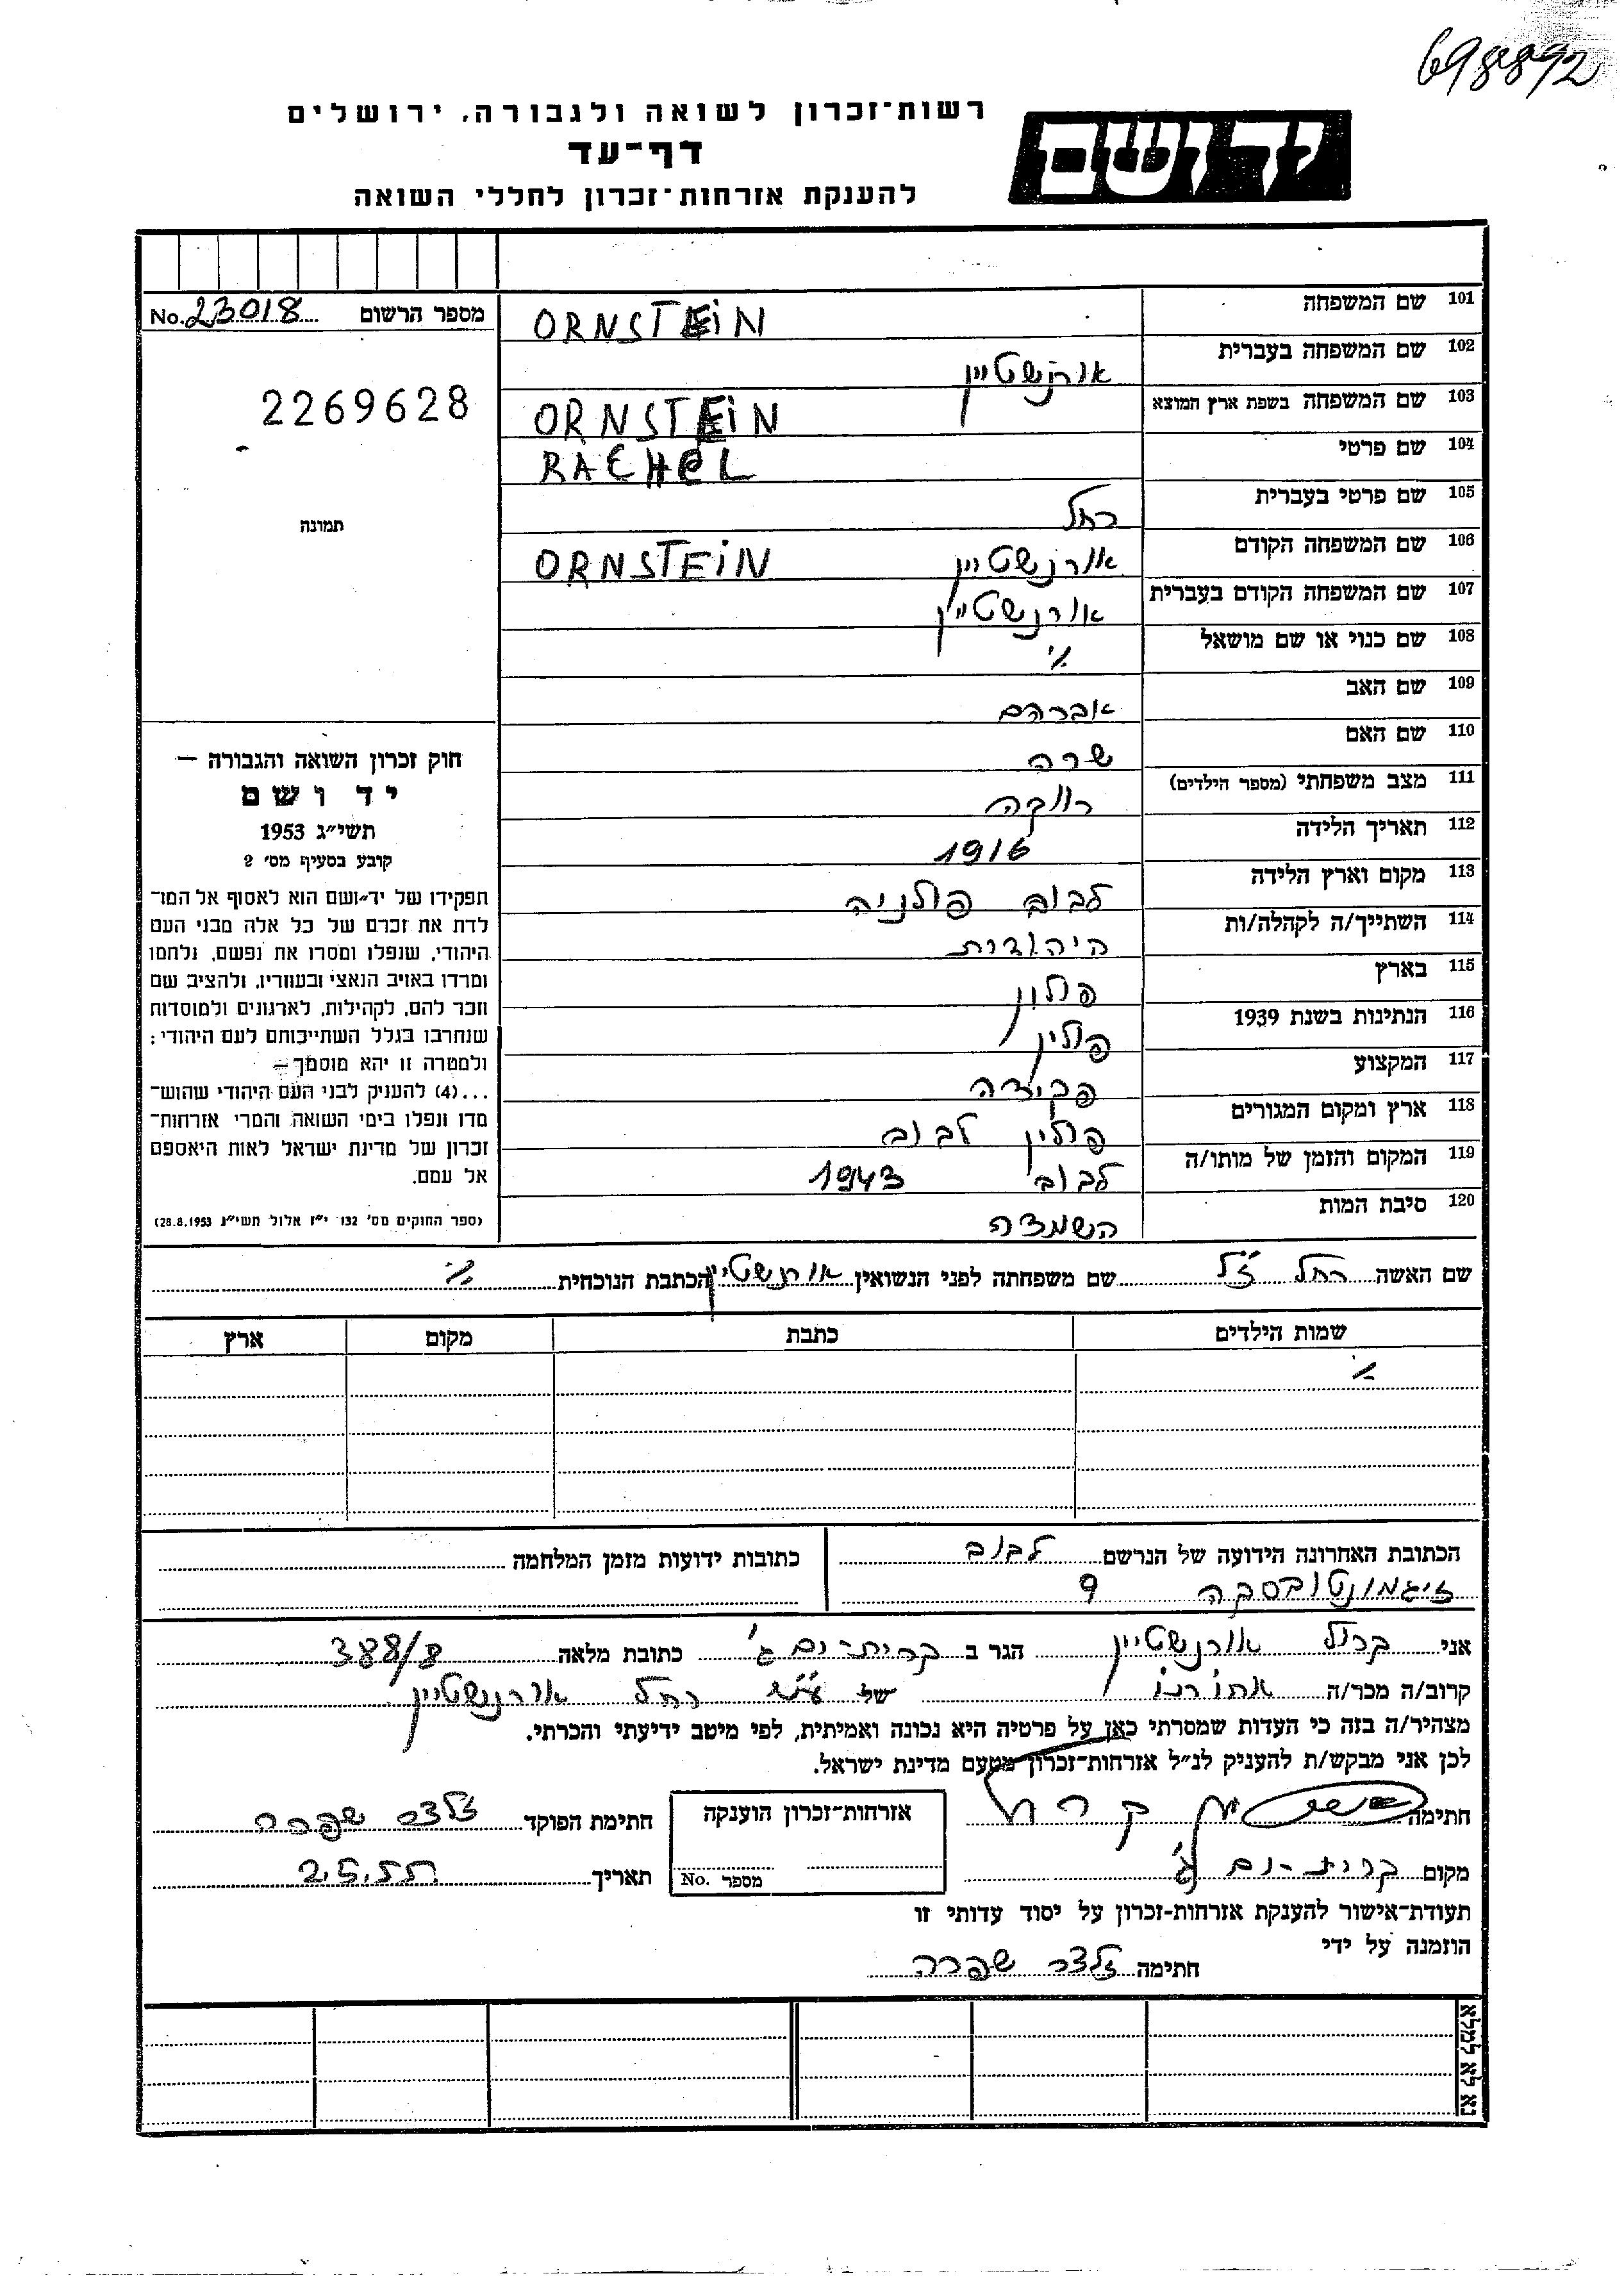 698892
רשות־זכרון לשואה ולגבורה, ירושלים
יד ושם
דף־עד
להענקת אזרחות־זכרון לחללי השואה
מספר הרשום No. 23018
2269628
תמונה
101 שם המשפחה ORNSTEIN
102 שם המשפחה בעברית אורנשטיין
103 שם המשפחה בשפת ארץ המוצא ORNSTEIN
104 שם פרטי RACHEL
105 שם פרטי בעברית רחל
106 שם המשפחה הקודם אורנשטיין ORNSTEIN
107 שם המשפחה הקודם בעברית אורנשטיין
108 שם כנוי או שם מושאל
109 שם האב אברהם
110 שם האם שרה
111 מצב משפחתי (מספר הילדים) רווקה
112 תאריך הלידה 1916
113 מקום וארץ הלידה לבוב פולניה
114 השתייך/ה לקהלה/ות היהודית
115 בארץ פולין
116 הנתינות בשנת 1939 פולין
117 המקצוע פקידה
118 ארץ ומקום המגורים פולין לבוב
119 המקום והזמן של מותו/ה לבוב 1943
120 סיבת המות השמדה
חוק זכרון השואה והגבורה —
יד ושם
תשי״ג 1953
קובע בסעיף מס׳ 2
תפקידו של יד־ושם הוא לאסוף אל המו־
לדת את זכרם של כל אלה מבני העם
היהודי, שנפלו ומסרו את נפשם, נלחמו
ומרדו באויב הנאצי ובעוזריו, ולהציב שם
וזכר להם, לקהילות, לארגונים ולמוסדות
שנחרבו בגלל השתייכותם לעם היהודי:
ולמטרה זו יהא מוסמך —
...(4) להעניק לבני העם היהודי שהוש־
מדו ונפלו בימי השואה והמרי אזרחות־
זכרון של מדינת ישראל לאות היאספם
אל עמם.
(ספר החוקים מס׳ 132 י״ז אלול תשי״ג 28.8.1953)
שם האשה רחל ז״ל שם משפחתה לפני הנשואין אורנשטיין הכתבת הנוכחית
שמות הילדים כתבת מקום ארץ
הכתובת האחרונה הידועה של הנרשם לבוב
זיגמונטובסקה 9
כתובות ידועות מזמן המלחמה
אני קרול אורנשטיין הגר ב קרית-ים ג׳ כתובת מלאה 388/8
קרוב/ה מכר/ה של רחל אורנשטיין
מצהיר/ה בזה כי העדות שמסרתי כאן על פרטיה היא נכונה ואמיתית, לפי מיטב ידיעתי והכרתי.
לכן אני מבקש/ת להעניק לנ״ל אזרחות־זכרון מטעם מדינת ישראל.
חתימה
אזרחות־זכרון הוענקה
מספר No.
חתימת הפוקד זלצר שפרה
מקום קרית-ים ג׳
תאריך 2.5.55
תעודת־אישור להענקת אזרחות־זכרון על יסוד עדותי זו
הוזמנה על ידי
חתימה זלצר שפרה
נא לא למלא